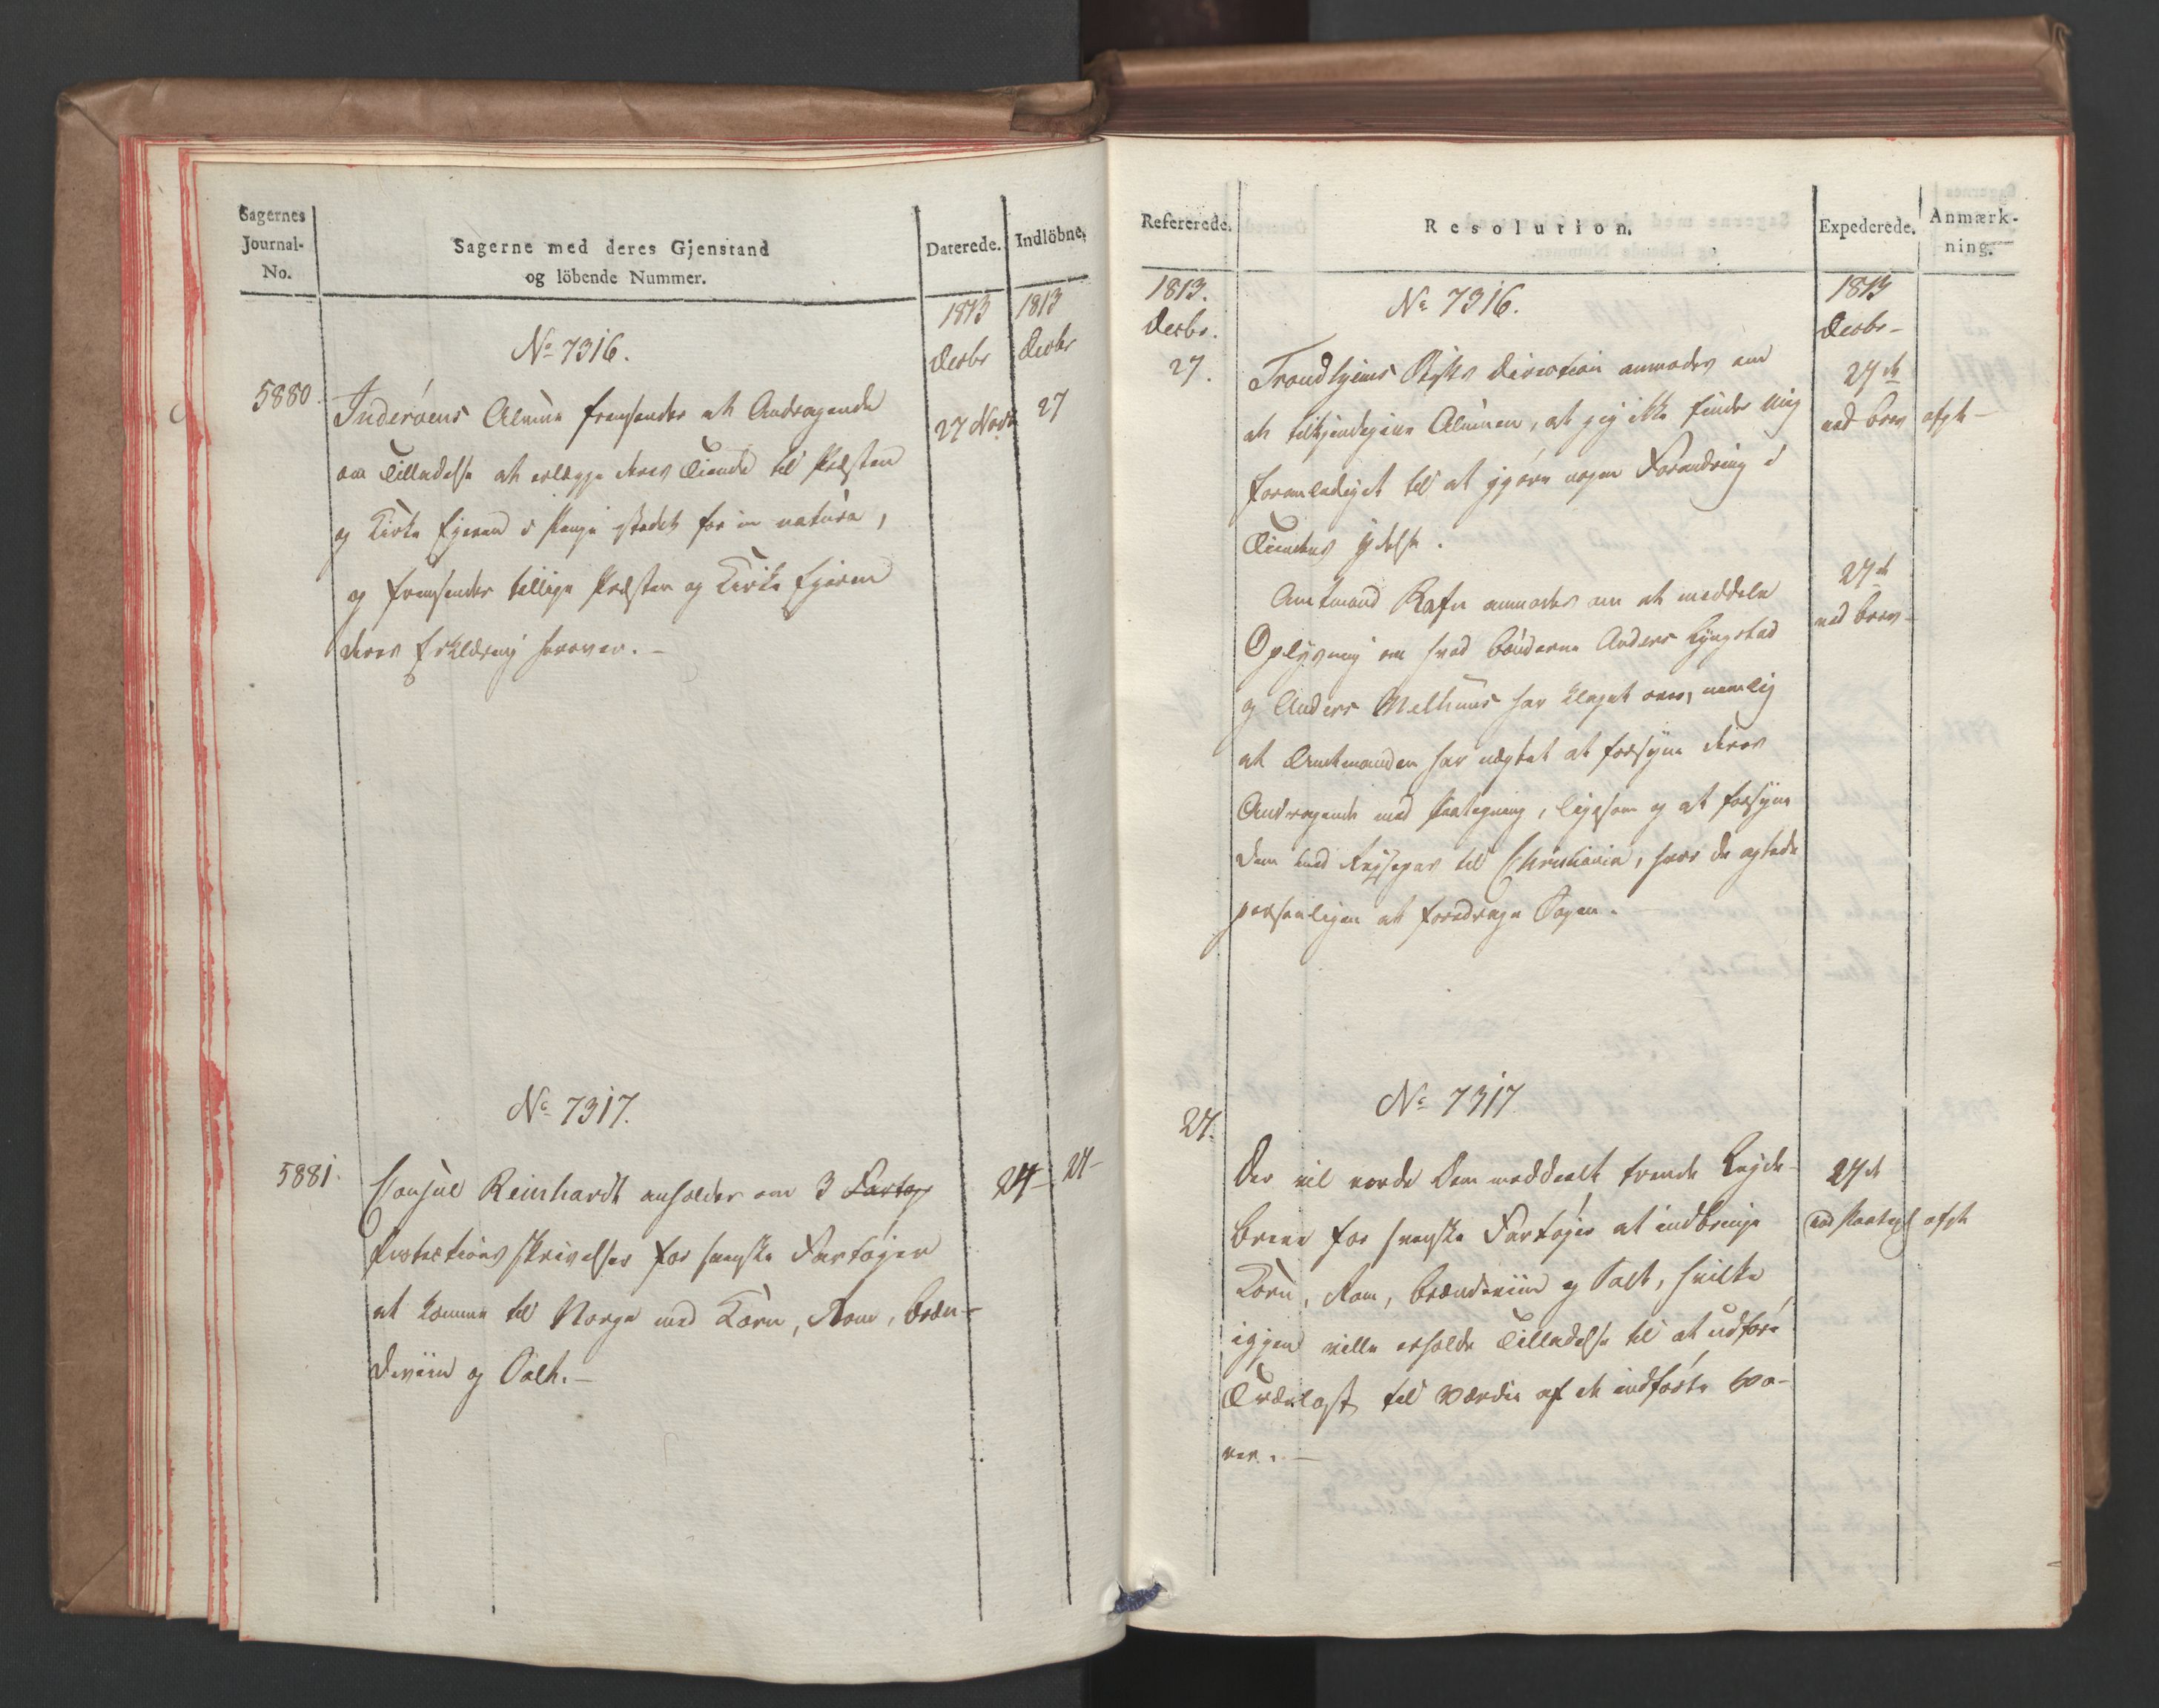 Sagernes
Journal-
No.
Sagerne med deres Gjenstand
og löbende Nummer.
Daterede.
Indlöbne.
1813
Decbr
1813
Decbr
No 7316.
5880.
Inderøens Almue fremsender et Andragende
om Tilladelse at erlægge deres Tiende til Præsten
og Kirke Ejeren i Penge istedet for in natura,
og fremsender tillige Præsten og Kirke Ejeren
deres Erklæring herover. –
27 Novb
27
No 7317.
5881.
Consul Reinhardt anholder om 3 Fartøj
Protections skrivelser for svenske Fartøjer
at komme til Norge med Korn, Rom, Bræn-
deviin og Salt. –
24 –
24 –
Refererede.
Resolution.
Expederede.
Anmærk-
ning.
1813.
Decbr.
27.
No 7316.
Trondhjems Stifts Direction anmodes om
at tilkjendegive Almuen, at jeg ikke finder mig
foranlediget til at gjøre nogen Forandring i
Tiendens Ydelse.
Amtmand Rafn anmodes om at meddele
Oplysning om hvad Bønderne Anders Lyngstad
og Anders Melhuus har klaget over, nemlig
at Amtmanden har nægtet at forsyne deres
Andragende med Paategning, ligesom og at forsyne
dem med Rejsepas til Christiania, hvor de agtede
personligen at foredrage Sagen.
1813
Decbr –
27de
ved Brev
afgt –
27de
ved Brev –
No 7317
27.
Der vil vorde Dem meddeelt trende Lejde-
Breve for svenske Fartøjer at indbringe
Korn, Rom, Brændeviin og Salt, hvilke
igjen ville erholde Tilladelse til at udføre
Trælast til Værdie af de indførte Va-
rer. –
27de
ved Paategn
afgt